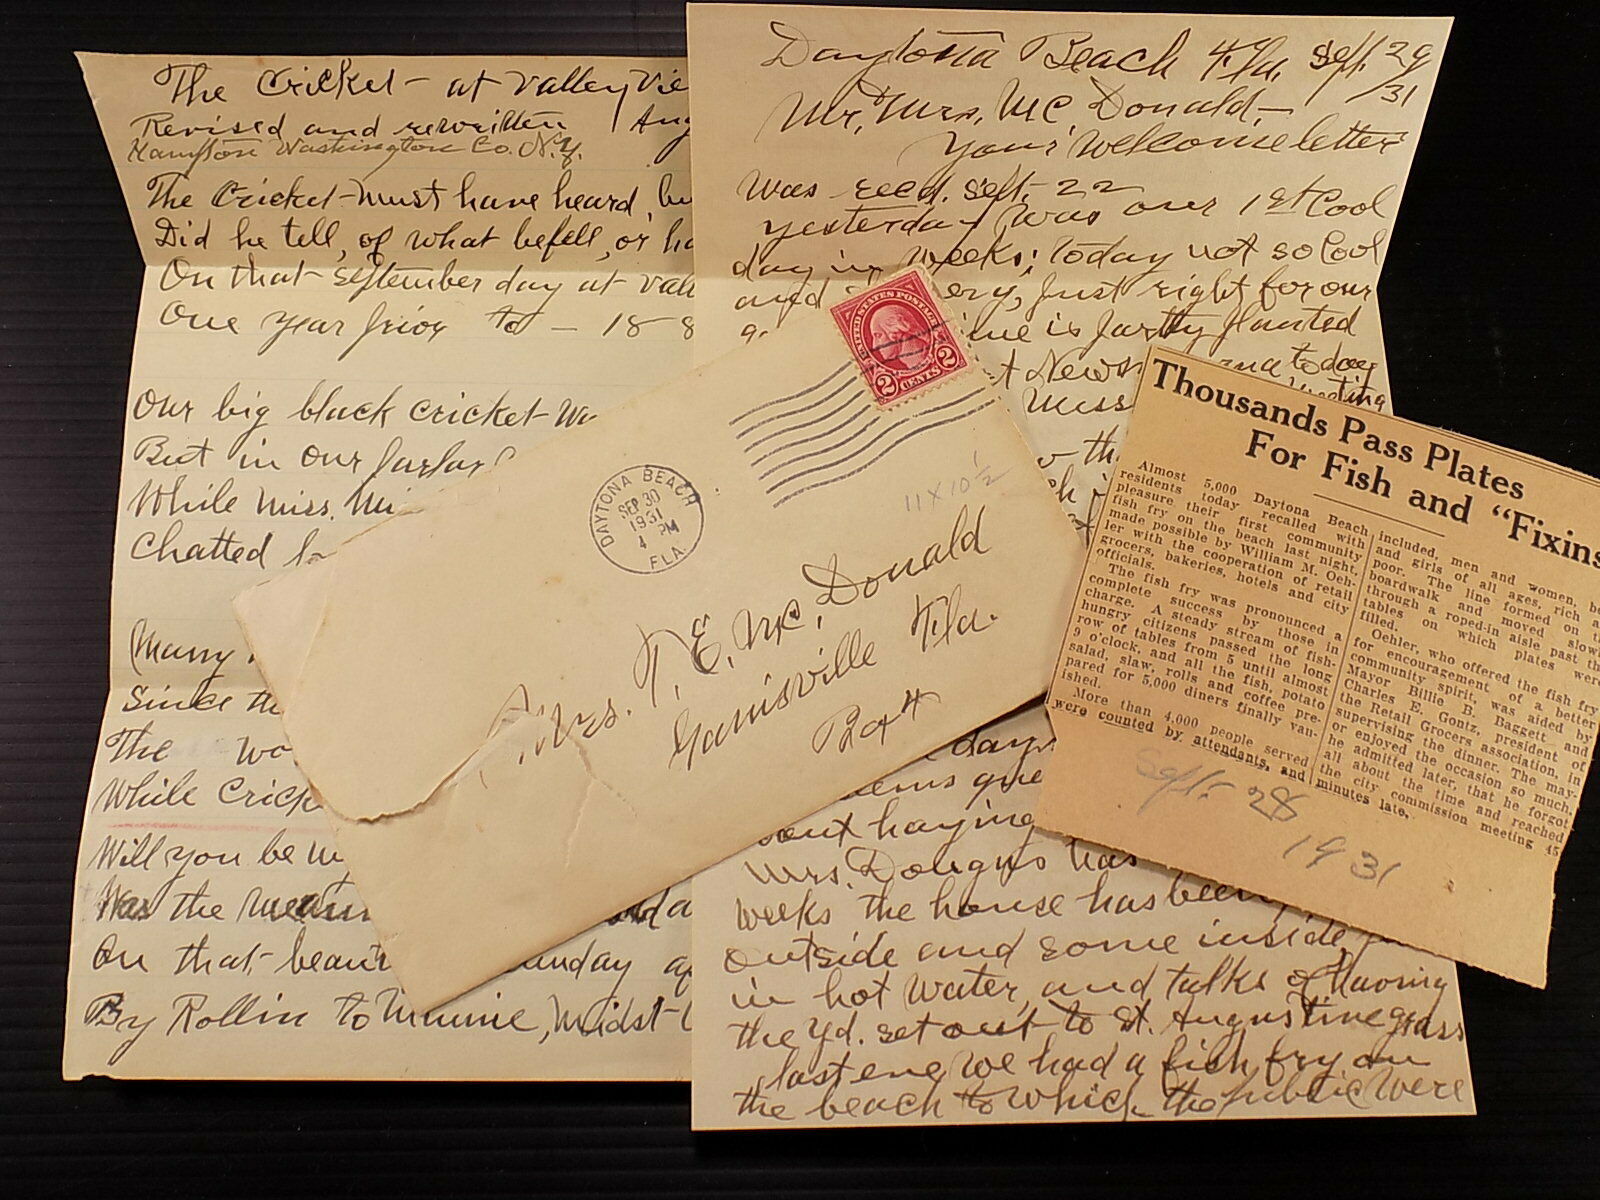 The Cricket - at Valley Vie
Revised and rewritten Aug
Hampton Washington Co. N.Y.
The Cricket must have heard, bu
Did he tell, of what befell, or ho
On that September day at Vall
One year prior to - 188
Our big black cricket wa
But in our parlor
While Miss. Mi
Chatted
Many
Since th
The wo
While Crick
Will you be my
Was the
On that, beaut unday a
By Rollin to Minnie, Midst
Daytona Beach Fla. Sept. 29/31
Mr, Mrs, Mc Donald,-
Your welcome letter
was recd. Sept. 22
yesterday was our 1st Cool
day in weeks; today not so Cool
and ery, Just right for our
ine is partly planted
t News today
Miss
days
ems
out haying
Mrs. Douglas has
weeks the house has been
outside and some inside,
in hot water, and talks of having
the yd. set out to St. Augustine grass
last eve we had a fish fry on
the beach to which the public were
UNITED STATES POSTAGE
2 CENTS 2
DAYTONA BEACH
SEP 30
1931
4 PM
FLA.
11 x 10 1/2
Mrs. T. E. Mc, Donald
Gainisville Fla.
Box 4
Thousands Pass Plates
For Fish and “Fixins
Almost 5,000 Daytona Beach
residents today recalled with
pleasure their first community
fish fry on the beach last night,
made possible by William M. Oeh-
ler with the cooperation of retail
grocers, bakeries, hotels and city
officials.
The fish fry was pronounced a
complete success by those in
charge. A steady stream of fish-
hungry citizens passed the long
row of tables from 5 until almost
9 o'clock, and all the fish, potato
salad, slaw, rolls and coffee pre-
pared for 5,000 diners finally van-
ished.
More than 4,000 people served
were counted by attendants, and
included, men and women, bo
and girls of all ages, rich a
poor. The line formed on th
boardwalk and moved slow
through a roped-in aisle past th
tables on which plates were
filled.
Oehler, who offered the fish fry
for encouragement of a better
community spirit, was aided by
Mayor Billie B. Baggett and
Charles E. Gontz, president of
the Retail Grocers association, in
supervising the dinner. The may-
or enjoyed the occasion so much,
he admitted later, that he forgot
all about the time and reached
the city commission meeting 45
minutes late.
Sept. 28
1931